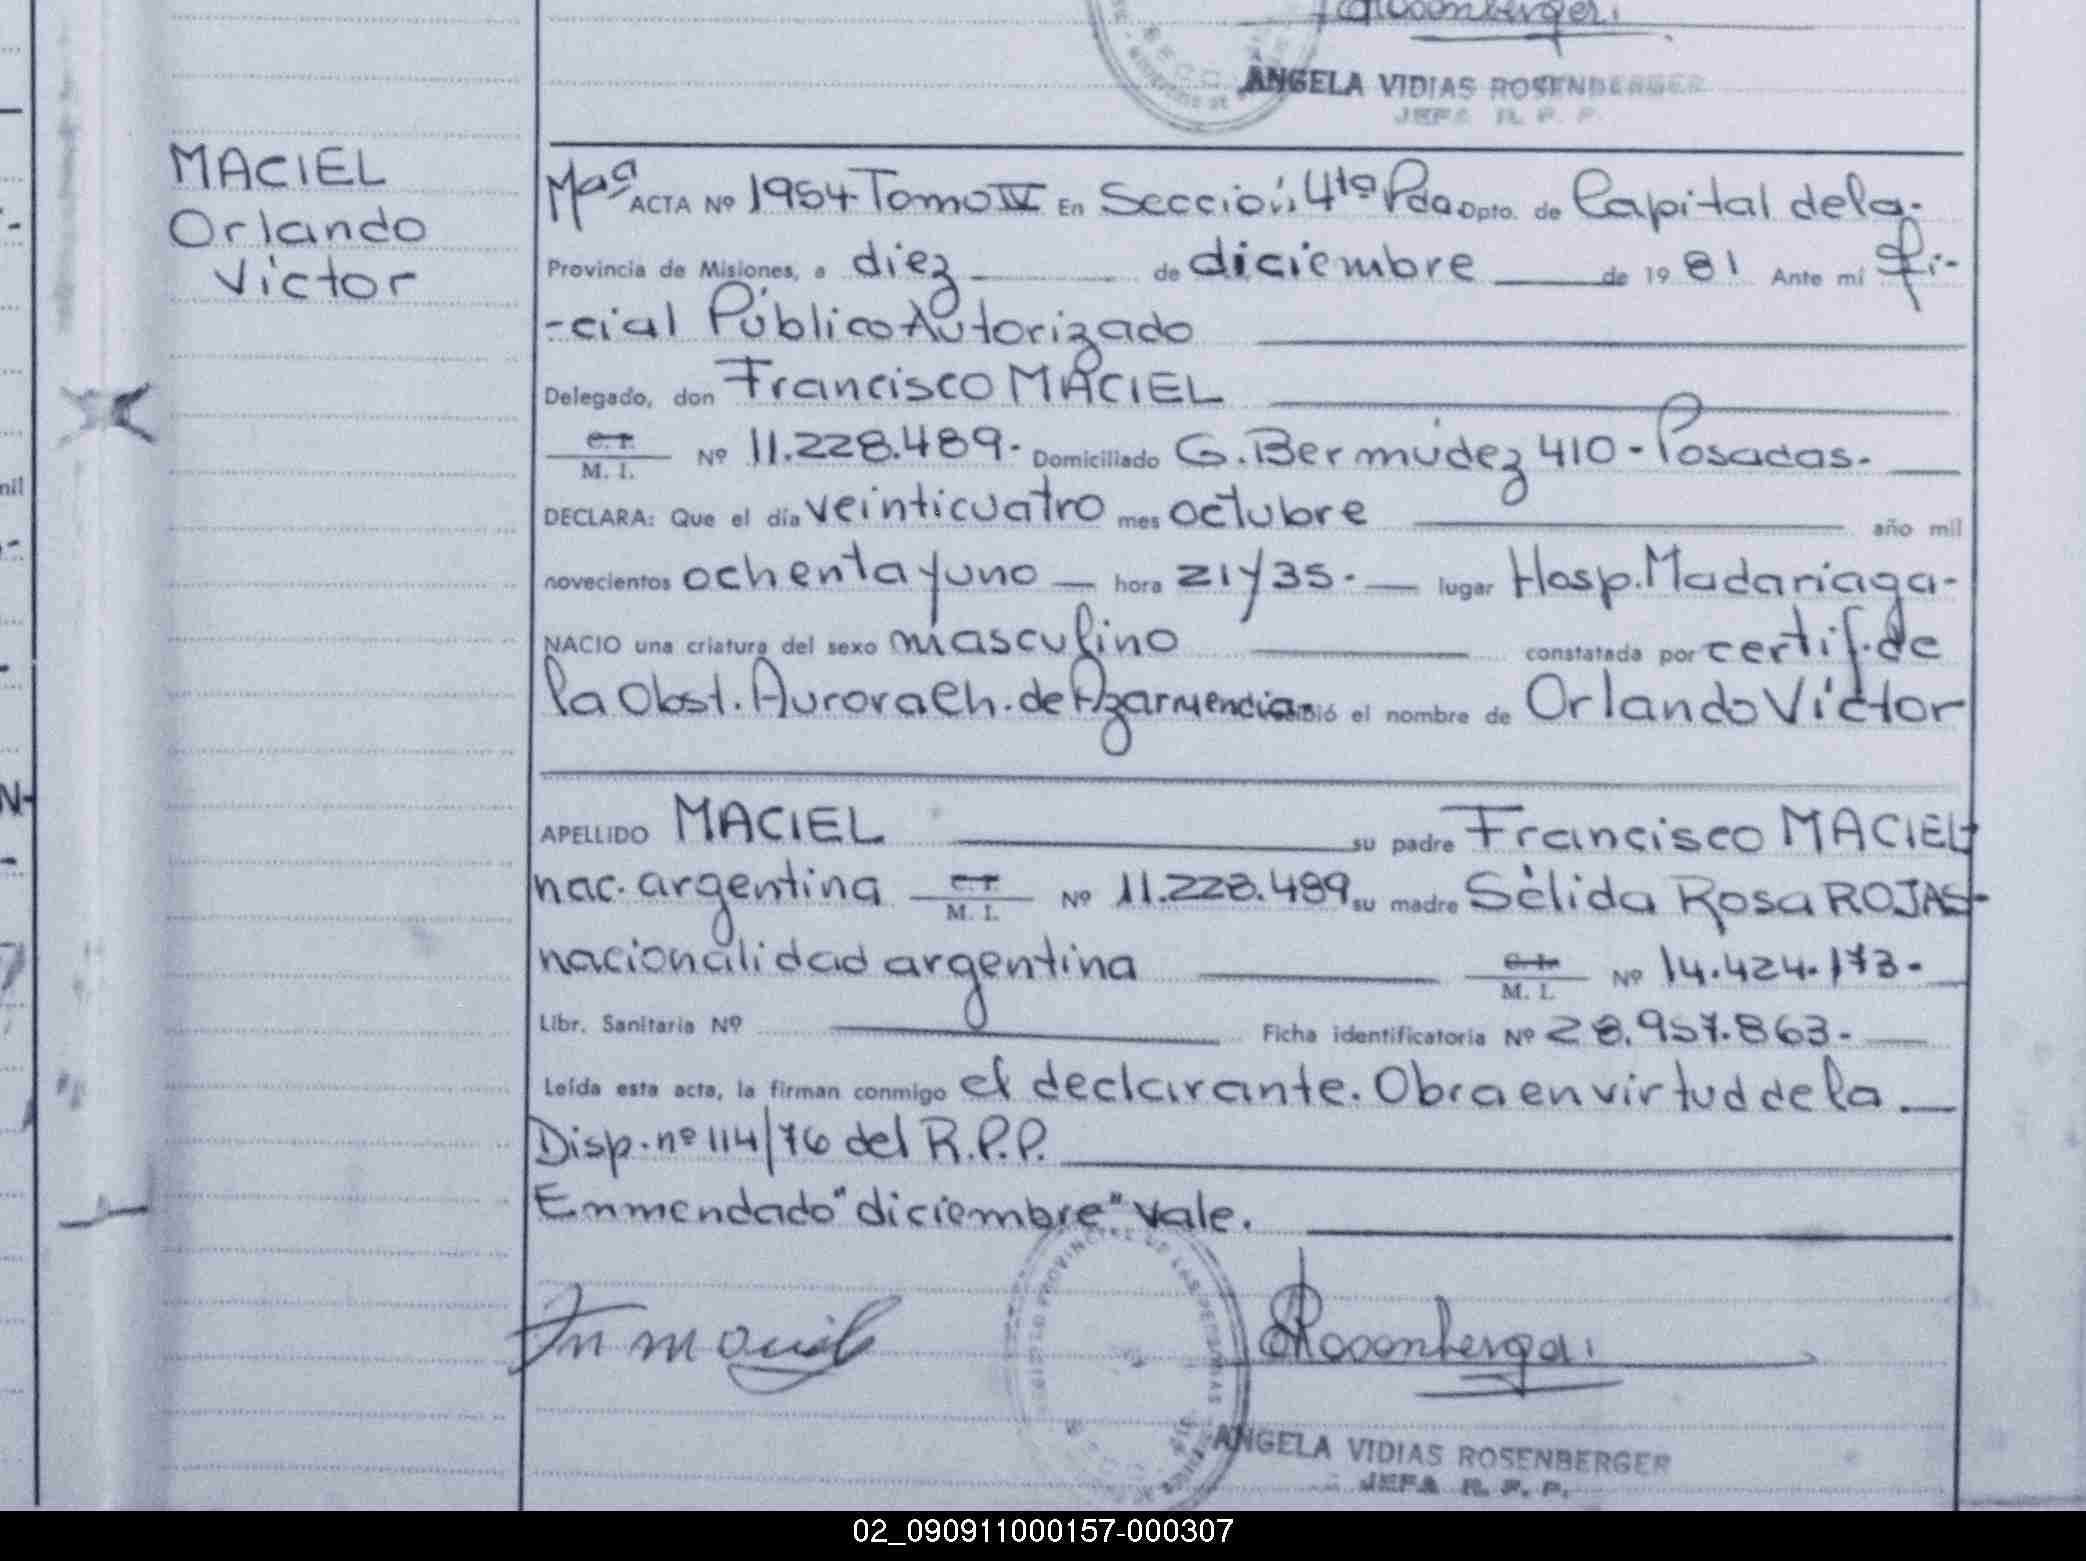 Rosenberger.
ANGELA VIDIAS ROSENBERGER
JEFA R. P. P.
MACIEL
Orlando
Victor
ACTA Nº 1954 Tomo IV En Sección 4ta Pda Dpto. de Capital de la.
Provincia de Misiones, a diez de diciembre de 1981 Ante mí Ofi-
-cial Público Autorizado
Delegado, don Francisco MACIEL
C. I.
M. I. Nº 11.228.489. Domiciliado G. Bermúdez 410 - Posadas.
DECLARA: Que el día veinticuatro mes octubre año mil
novecientos ochenta y uno hora 21 y 35. lugar Hosp. Madariaga-
NACIO una criatura del sexo masculino constatada por certif. de
la Obst. Aurora Ch. de Azarmendia. recibió el nombre de Orlando Víctor
APELLIDO MACIEL su padre Francisco MACIEL
nac. argentina C. I. M. I. Nº 11.228.489 su madre Sélida Rosa ROJAS-
nacionalidad argentina C. I. M. I. Nº 14.424.173.
Libr. Sanitaria Nº Ficha identificatoria Nº 28.957.863.
Leída esta acta, la firman conmigo el declarante. Obra en virtud de la
Disp. nº 114/76 del R.P.P.
Enmendado "diciembre" vale.
Rosenberger
ANGELA VIDIAS ROSENBERGER
JEFA R. P. P.
02_090911000157-000307